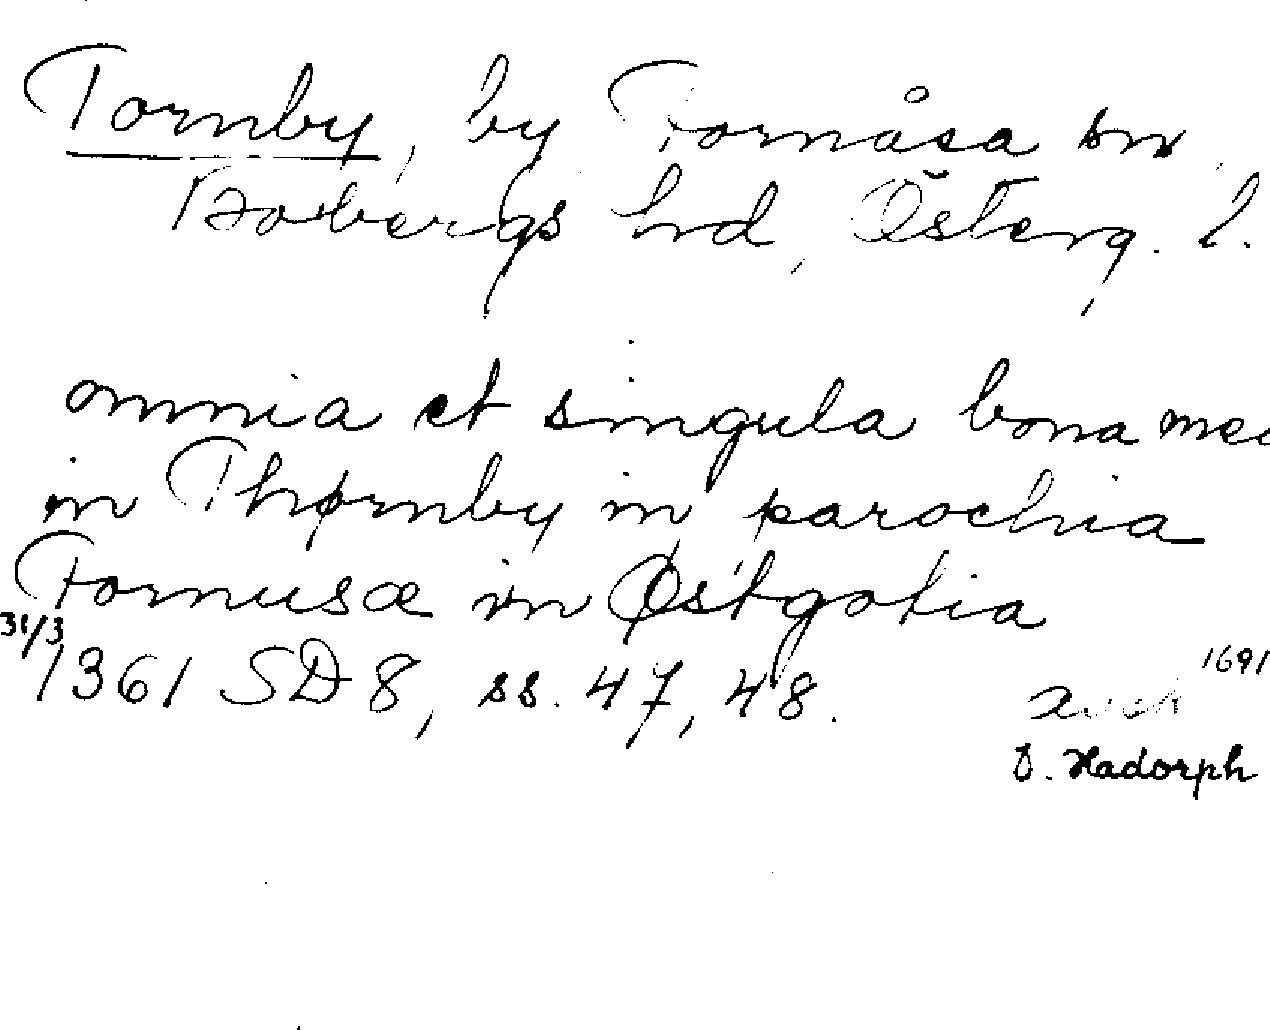 Tornby, by Fornåsa sn,
Bobergs hd, Österg. l.
omnia et singula bona mea
in Thørnby in parochia
Fornusæ in Østgotia
31/3 1361 SD 8, ss. 47, 48.
1691
J. Hadorph